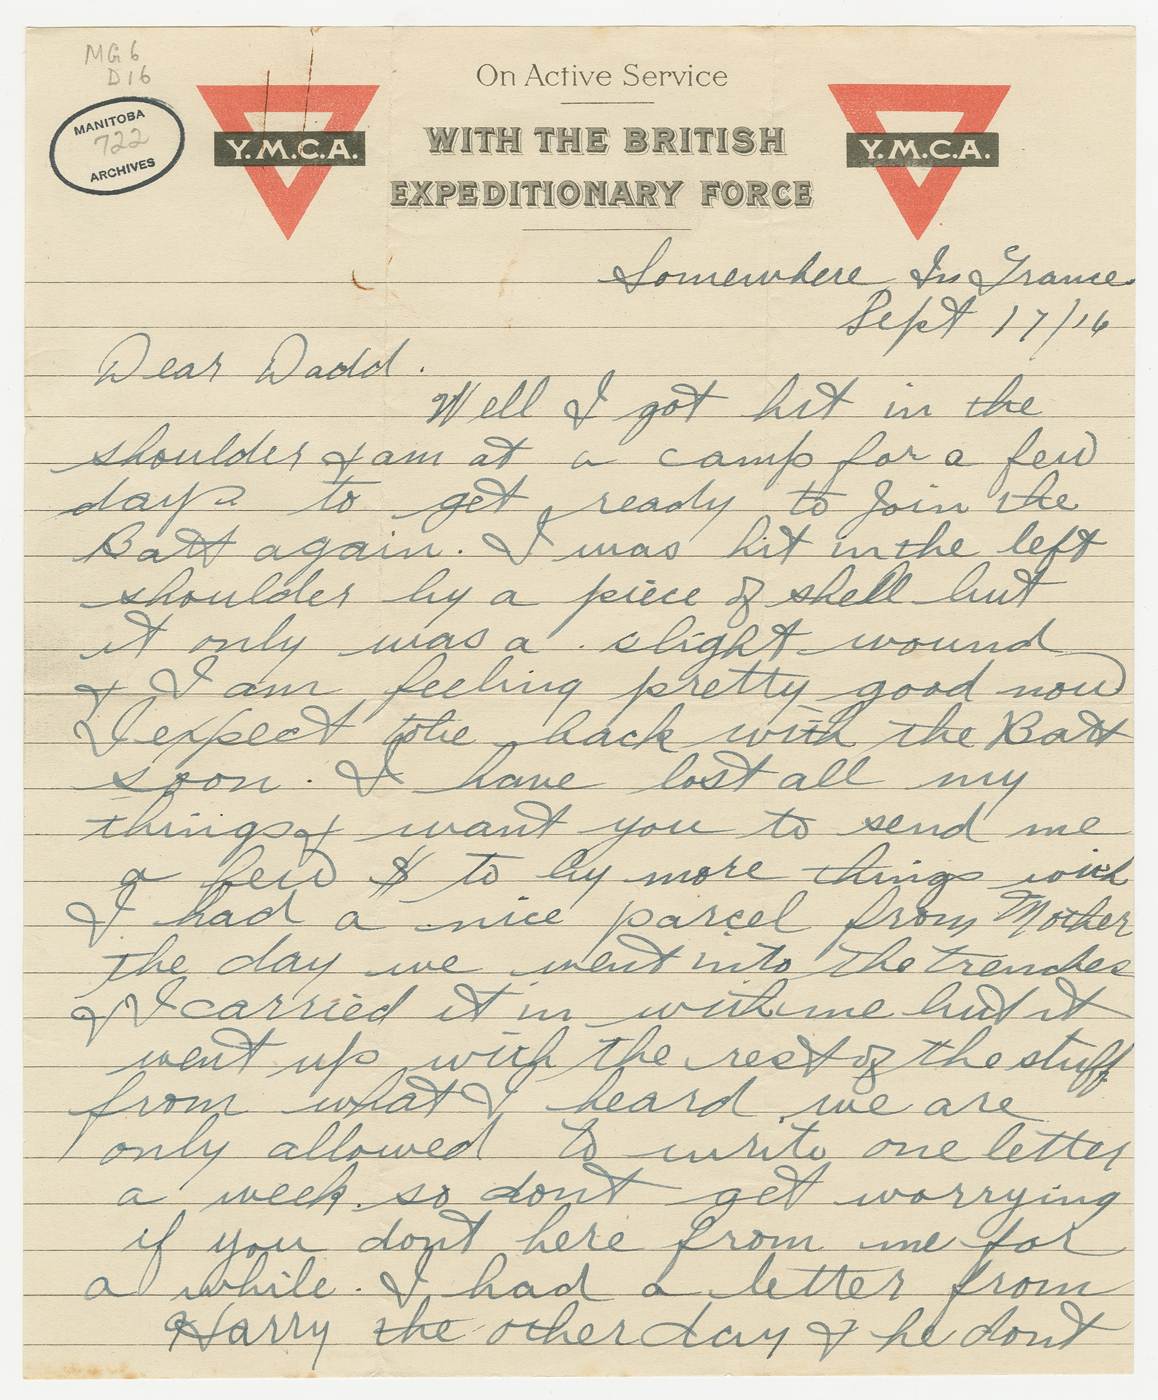 MG6
D16
MANITOBA
722
ARCHIVES
Y.M.C.A.
On Active Service
WITH THE BRITISH
EXPEDITIONARY FORCE
Y.M.C.A.
Somewhere In France
Sept 17/16
Dear Dadd.
Well I got hit in the
shoulder & am at a camp for a few
days to get ready to join the
Batt again. I was hit in the left
shoulder by a piece of shell but
it only was a slight wound
& I am feeling pretty good now
I expect to be back with the Batt
soon. I have lost all my
things & want you to send me
a few $ to by more things with
I had a nice parcel from Mother
the day we went into the trenches
& I carried it in with me but it
went up with the rest of the stuff
from what I heard we are
only allowed to write one letter
a week. so dont get worrying
if you dont here from me for
a while. I had a letter from
Harry the other day & he dont